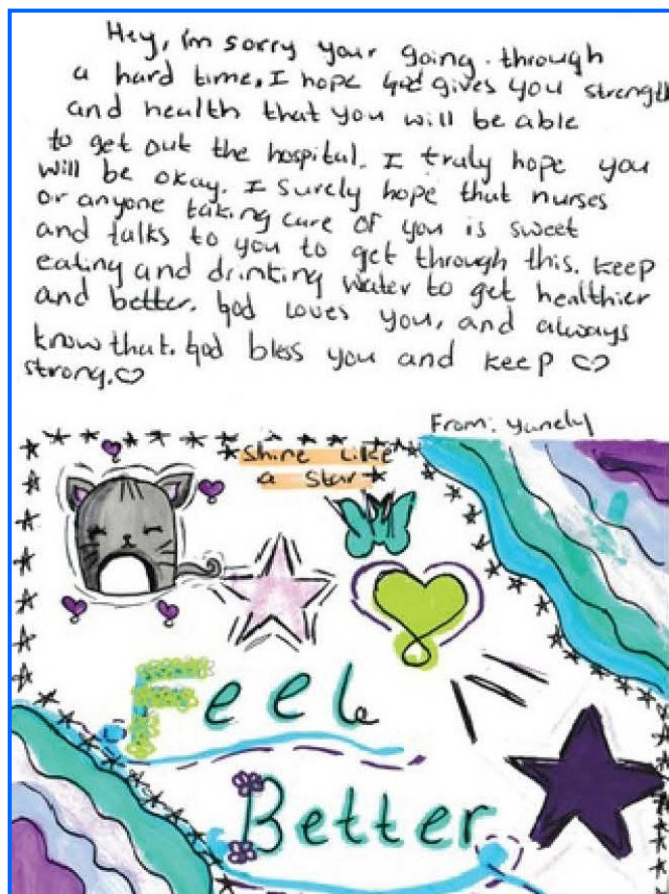 Hey, i'm sorry your going through
a hard time. I hope God gives you strength
and health that you will be able
to get out the hospital. I truly hope you
will be okay. I surely hope that nurses
or anyone taking care of you is sweet
and talks to you to get through this. keep
eating and drinking water to get healthier
and better. God loves you, and always
know that. God bless you and keep ♡
strong.♡
From: yunely
Shine Like
a Star
Feel
Better